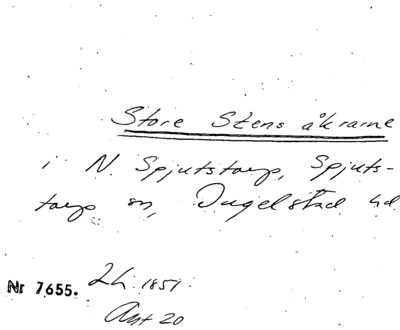 Store Stens åkrarne
i N. Spjutstorp, Spjuts-
torp sn, Ingelstad hd
Nr 7655. LH. 1851.
Akt 20